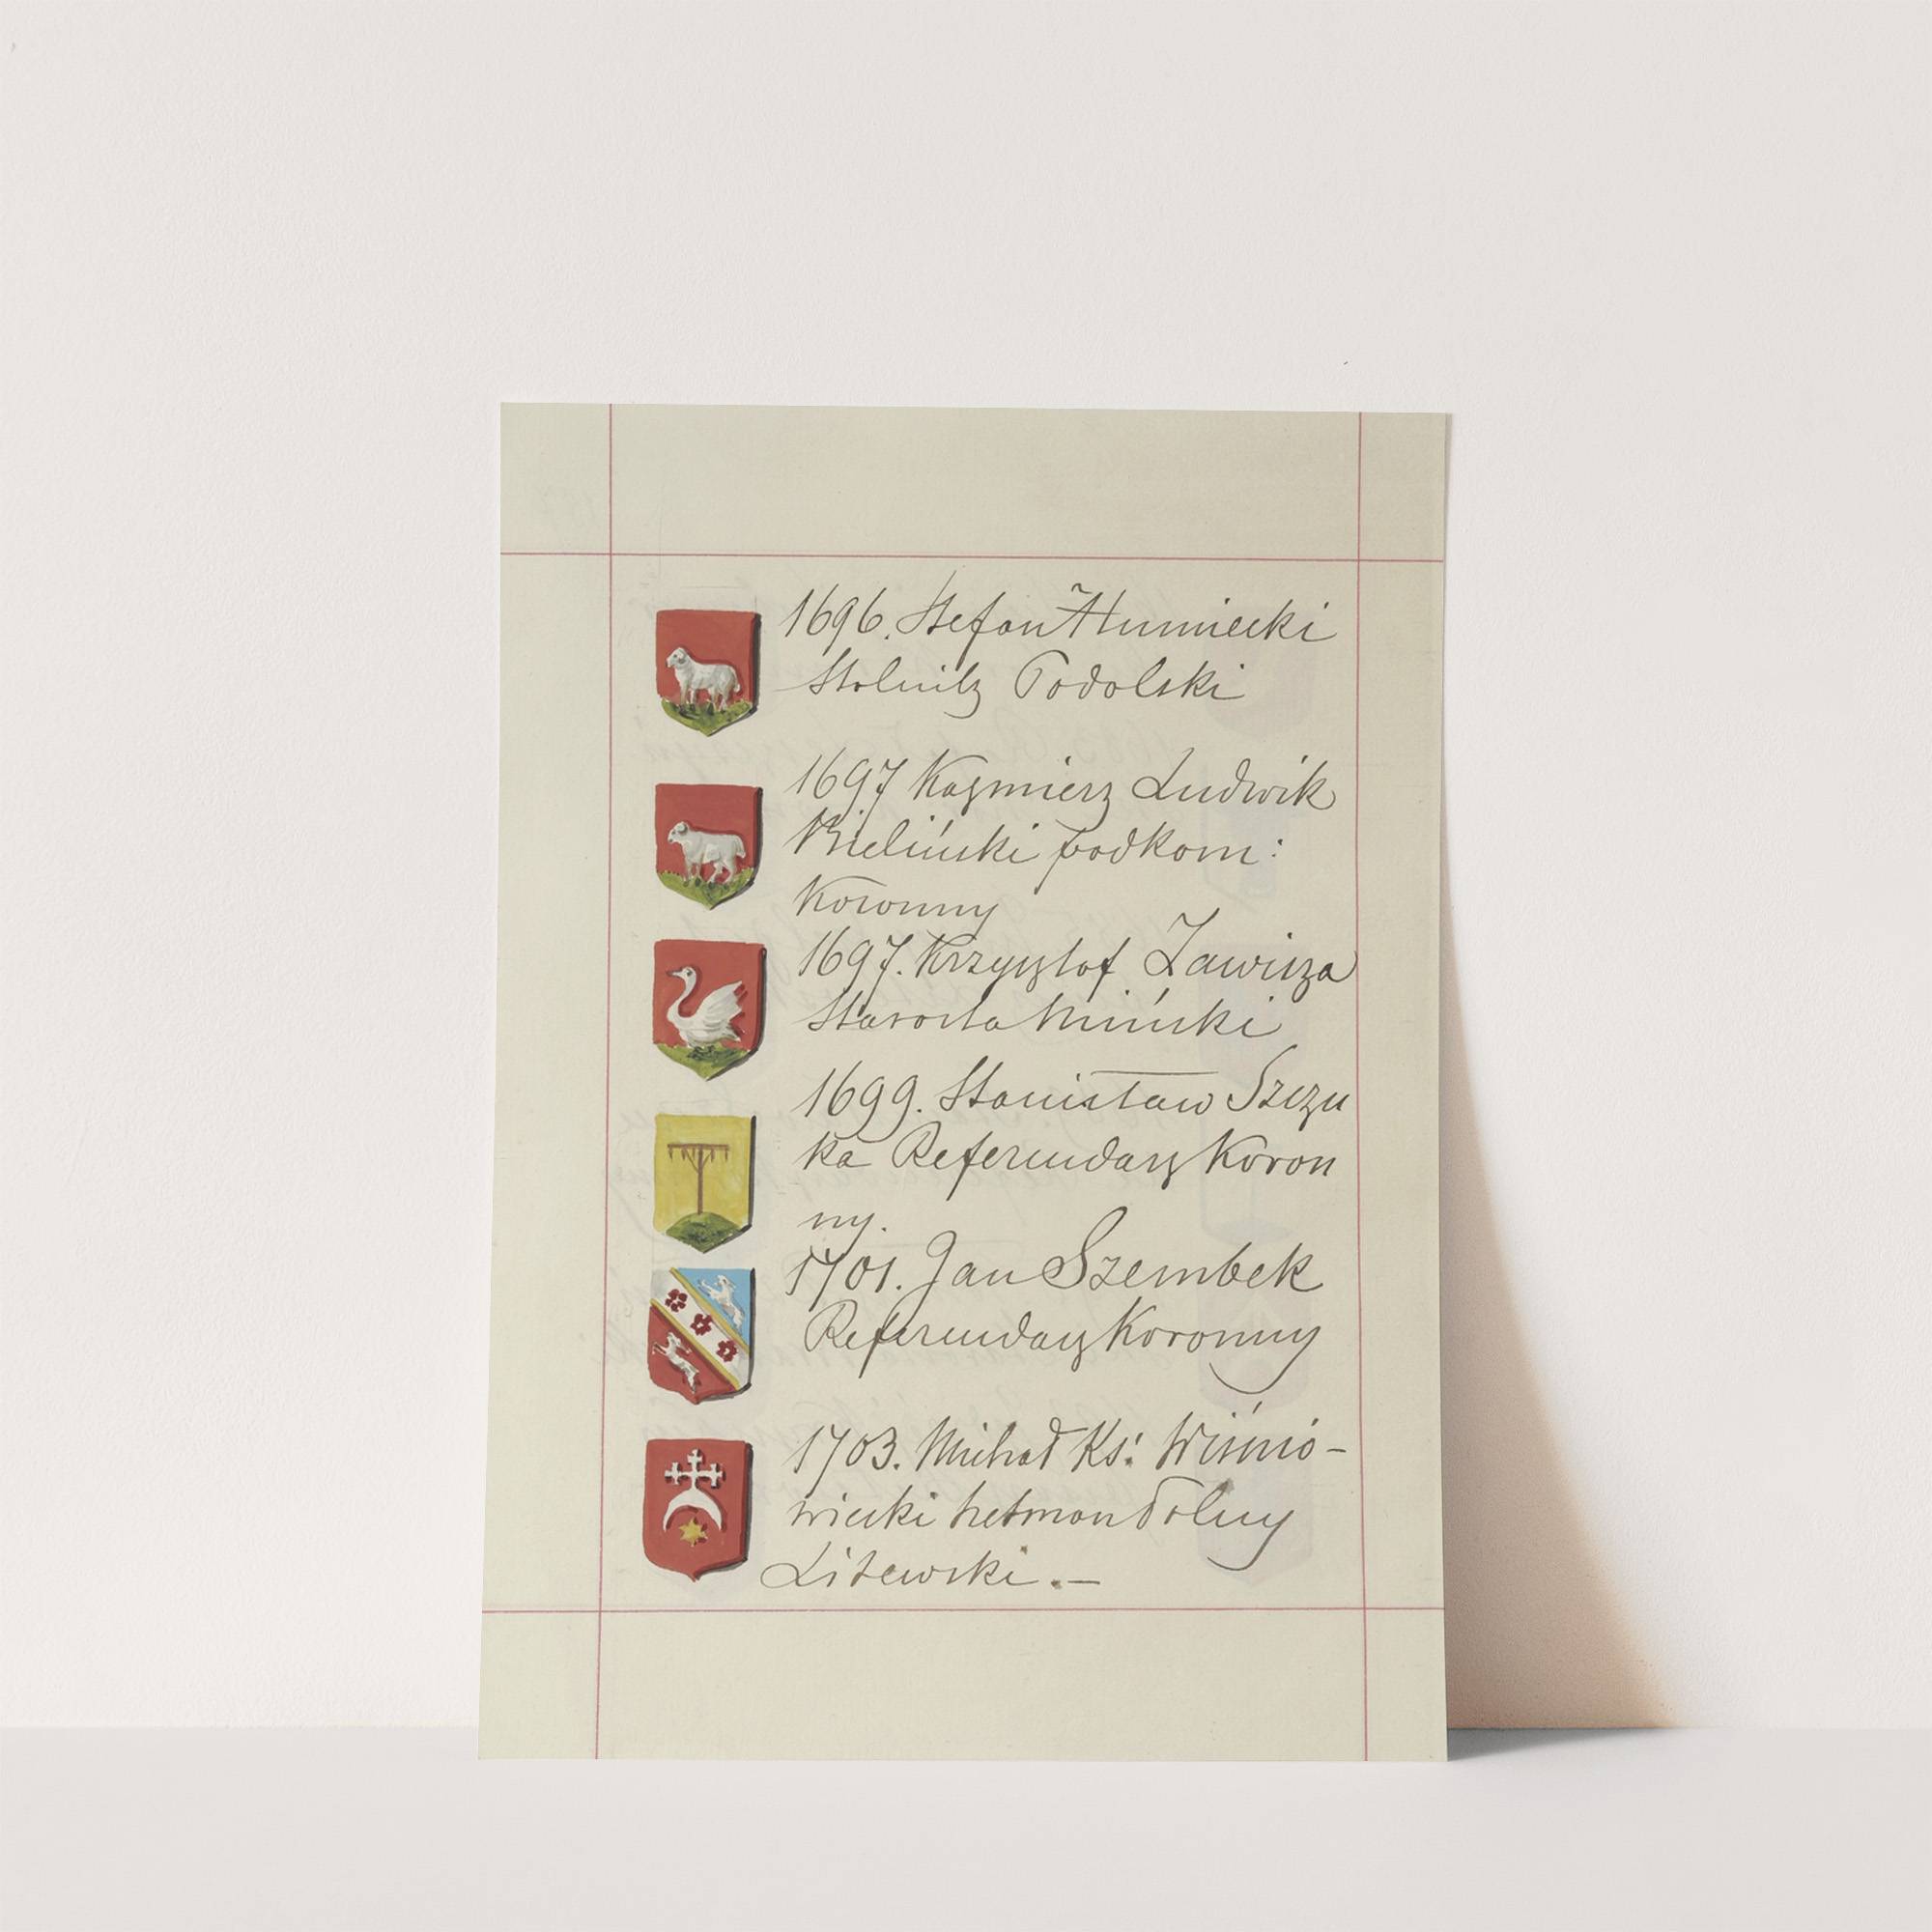 1696. Stefan Humiecki
Stolnik Podolski
1697 Kazmierz Ludwik
Bieliński podkom:
Koronny
1697. Krzysztof Zawisza
Starosta Miński
1699. Stanisław Szczu
ka Referendarz Koron
ny.
1701. Jan Szembek
Referendarz Koronny
1703. Michał Ks: Wiśnio-
wiecki hetman Polny
Litewski.—